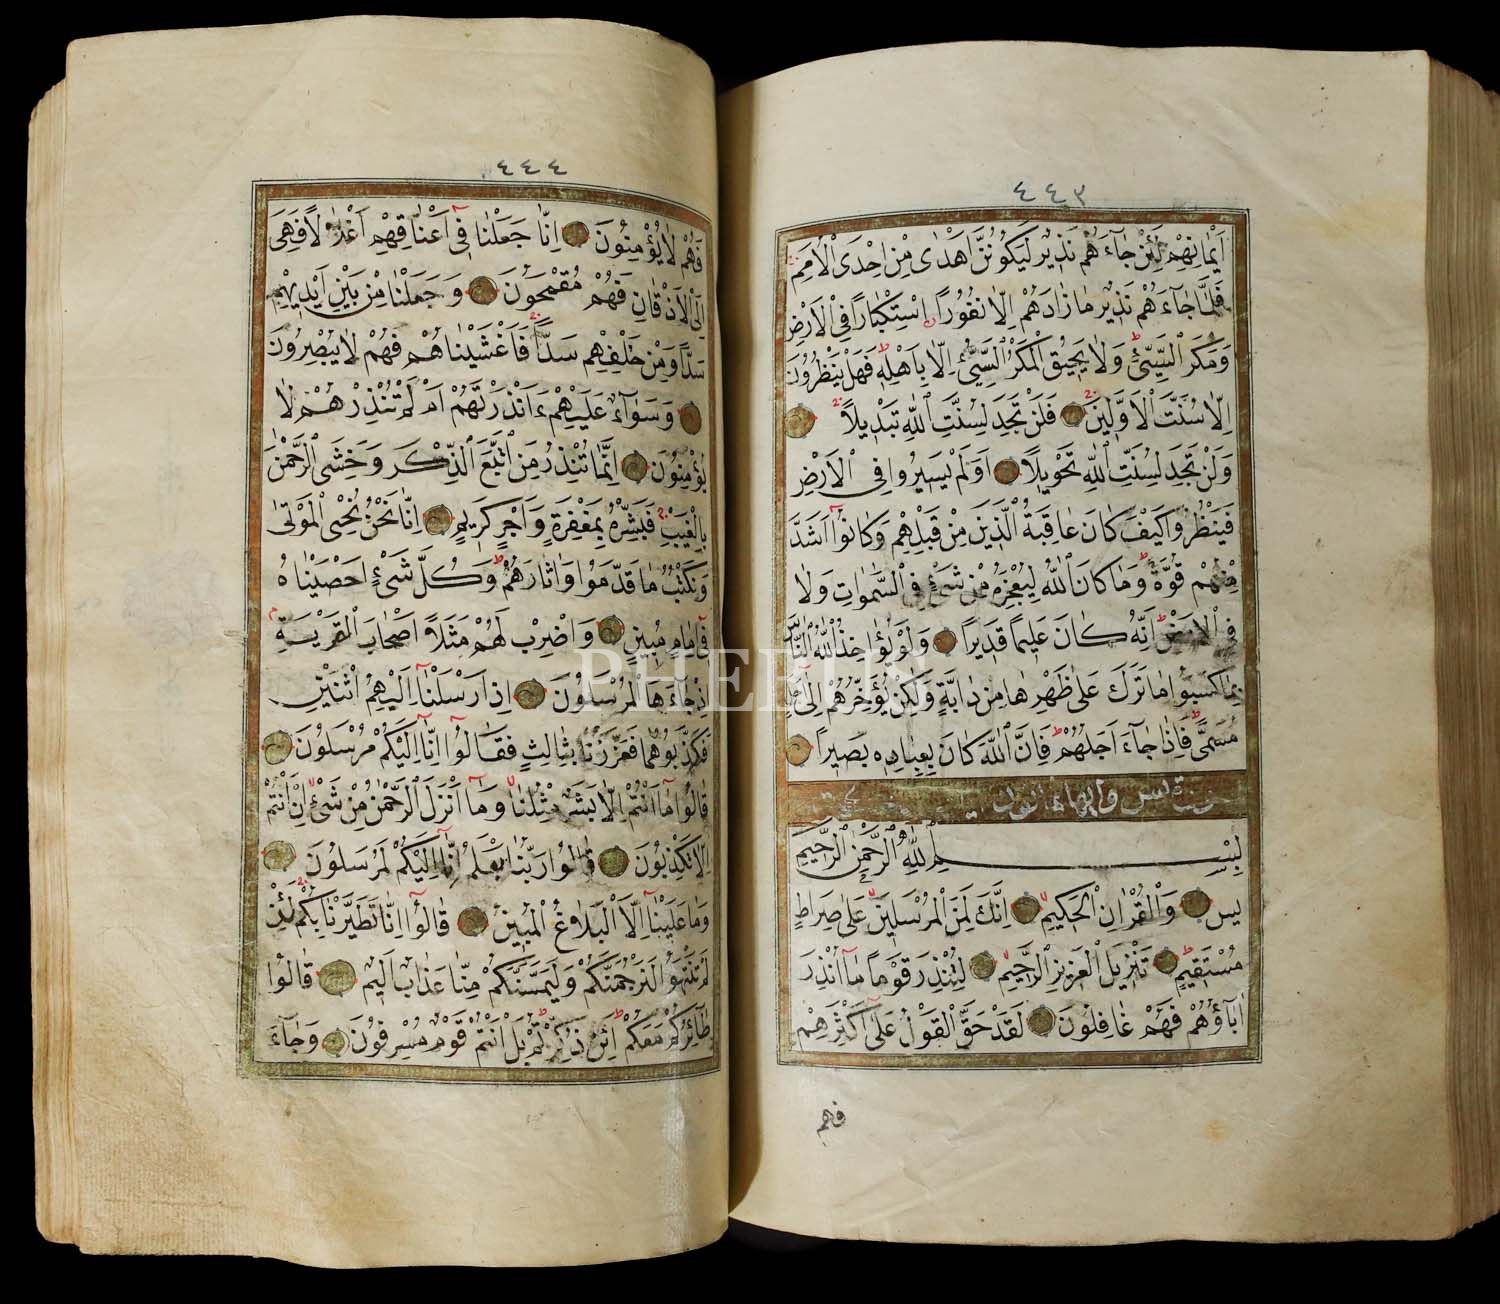 ٤٤٣
اَيْمَانِهِمْ لَئِنْ جَٓاءَهُمْ نَذ۪يرٌ لَيَكُونُنَّ اَهْدٰى مِنْ اِحْدَى الْاُمَمِ
فَلَمَّا جَٓاءَهُمْ نَذ۪يرٌ مَا زَادَهُمْ اِلَّا نُفُورًا اِسْتِكْبَارًا فِي الْاَرْضِ
وَمَكْرَ السَّيِّئِ وَلَا يَح۪يقُ الْمَكْرُ السَّيِّئُ اِلَّا بِاَهْلِه۪ فَهَلْ يَنْظُرُونَ
اِلَّا سُنَّتَ الْاَوَّل۪ينَ فَلَنْ تَجِدَ لِسُنَّتِ اللّٰهِ تَبْد۪يلًا
وَلَنْ تَجِدَ لِسُنَّتِ اللّٰهِ تَحْو۪يلًا اَوَلَمْ يَس۪يرُوا فِي الْاَرْضِ
فَيَنْظُرُوا كَيْفَ كَانَ عَاقِبَةُ الَّذ۪ينَ مِنْ قَبْلِهِمْ وَكَانُٓوا اَشَدَّ
مِنْهُمْ قُوَّةً وَمَا كَانَ اللّٰهُ لِيُعْجِزَهُ مِنْ شَيْءٍ فِي السَّمٰوَاتِ وَلَا
فِي الْاَرْضِ اِنَّهُ كَانَ عَل۪يمًا قَد۪يرًا وَلَوْ يُؤَاخِذُ اللّٰهُ النَّاسَ
بِمَا كَسَبُوا مَا تَرَكَ عَلٰى ظَهْرِهَا مِنْ دَٓابَّةٍ وَلٰكِنْ يُؤَخِّرُهُمْ اِلٰٓى اَجَلٍ
مُسَمًّى فَاِذَا جَٓاءَ اَجَلُهُمْ فَاِنَّ اللّٰهَ كَانَ بِعِبَادِه۪ بَص۪يرًا
سورة يس
بِسْمِ اللّٰهِ الرَّحْمٰنِ الرَّح۪يمِ
يس وَالْقُرْاٰنِ الْحَك۪يمِ اِنَّكَ لَمِنَ الْمُرْسَل۪ينَ عَلٰى صِرَاطٍ
مُسْتَق۪يمٍ تَنْز۪يلَ الْعَز۪يزِ الرَّح۪يمِ لِتُنْذِرَ قَوْمًا مَٓا اُنْذِرَ
اٰبَٓاؤُهُمْ فَهُمْ غَافِلُونَ لَقَدْ حَقَّ الْقَوْلُ عَلٰٓى اَكْثَرِهِمْ
فهم
٤٤٤
فَهُمْ لَا يُؤْمِنُونَ اِنَّا جَعَلْنَا ف۪ٓي اَعْنَاقِهِمْ اَغْلَالًا فَهِيَ
اِلَى الْاَذْقَانِ فَهُمْ مُقْمَحُونَ وَجَعَلْنَا مِنْ بَيْنِ اَيْد۪يهِمْ
سَدًّا وَمِنْ خَلْفِهِمْ سَدًّا فَاَغْشَيْنَاهُمْ فَهُمْ لَا يُبْصِرُونَ
وَسَوَٓاءٌ عَلَيْهِمْ ءَاَنْذَرْتَهُمْ اَمْ لَمْ تُنْذِرْهُمْ لَا
يُؤْمِنُونَ اِنَّمَا تُنْذِرُ مَنِ اتَّبَعَ الذِّكْرَ وَخَشِيَ الرَّحْمٰنَ
بِالْغَيْبِ فَبَشِّرْهُ بِمَغْفِرَةٍ وَاَجْرٍ كَر۪يمٍ اِنَّا نَحْنُ نُحْيِ الْمَوْتٰى
وَنَكْتُبُ مَا قَدَّمُوا وَاٰثَارَهُمْ وَكُلَّ شَيْءٍ اَحْصَيْنَاهُ
ف۪ٓي اِمَامٍ مُب۪ينٍ وَاضْرِبْ لَهُمْ مَثَلًا اَصْحَابَ الْقَرْيَةِ
اِذْ جَٓاءَهَا الْمُرْسَلُونَ اِذْ اَرْسَلْنَٓا اِلَيْهِمُ اثْنَيْنِ
فَكَذَّبُوهُمَا فَعَزَّزْنَا بِثَالِثٍ فَقَالُٓوا اِنَّٓا اِلَيْكُمْ مُرْسَلُونَ
قَالُوا مَٓا اَنْتُمْ اِلَّا بَشَرٌ مِثْلُنَا وَمَٓا اَنْزَلَ الرَّحْمٰنُ مِنْ شَيْءٍ اِنْ اَنْتُمْ
اِلَّا تَكْذِبُونَ قَالُوا رَبُّنَا يَعْلَمُ اِنَّٓا اِلَيْكُمْ لَمُرْسَلُونَ
وَمَا عَلَيْنَٓا اِلَّا الْبَلَاغُ الْمُب۪ينُ قَالُٓوا اِنَّا تَطَيَّرْنَا بِكُمْ لَئِنْ
لَمْ تَنْتَهُوا لَنَرْجُمَنَّكُمْ وَلَيَمَسَّنَّكُمْ مِنَّا عَذَابٌ اَل۪يمٌ قَالُوا
طَٓائِرُكُمْ مَعَكُمْ اَئِنْ ذُكِّرْتُمْ بَلْ اَنْتُمْ قَوْمٌ مُسْرِفُونَ وَجَٓاءَ
PHEBUS